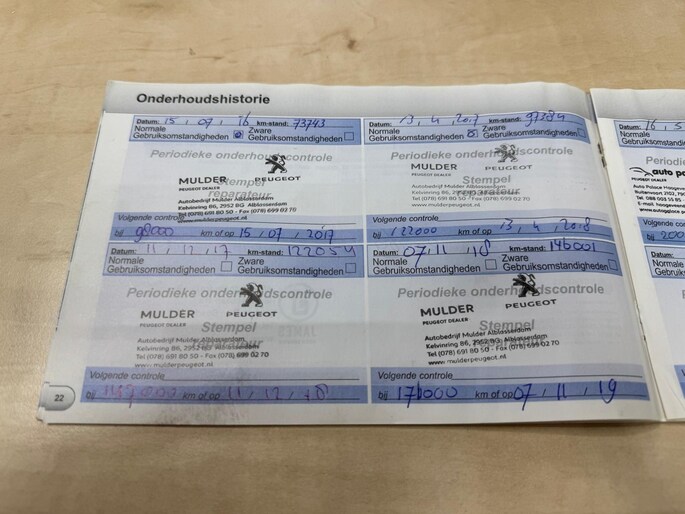 Onderhoudshistorie
Datum: 15, 07, 16 km-stand: 73743
Normale Gebruiksomstandigheden
Zware Gebruiksomstandigheden
Periodieke onderhoudscontrole
MULDER PEUGEOT
PEUGEOT DEALER
Stempel reparateur
Autobedrijf Mulder Alblasserdam
Kelvinring 86, 2952 BG Alblasserdam
Tel (078) 691 80 50 - Fax (078) 699 02 70
www.mulderpeugeot.nl
Volgende controle
bij 98000 km of op 15, 07, 2017
Datum: 13, 4, 2017 km-stand: 97384
Normale Gebruiksomstandigheden
Zware Gebruiksomstandigheden
Periodieke onderhoudscontrole
MULDER PEUGEOT
PEUGEOT DEALER
Stempel reparateur
Autobedrijf Mulder Alblasserdam
Kelvinring 86, 2952 BG Alblasserdam
Tel (078) 691 80 50 - Fax (078) 699 02 70
www.mulderpeugeot.nl
Volgende controle
bij 122000 km of op 13, 4, 2018
Datum: 11, 12, 17 km-stand: 122054
Normale Gebruiksomstandigheden
Zware Gebruiksomstandigheden
Periodieke onderhoudscontrole
MULDER PEUGEOT
PEUGEOT DEALER
Stempel reparateur
Autobedrijf Mulder Alblasserdam
Kelvinring 86, 2952 BG Alblasserdam
Tel (078) 691 80 50 - Fax (078) 699 02 70
www.mulderpeugeot.nl
Volgende controle
bij km of op 11, 12, 18
Datum: 07, 11, 18 km-stand: 146001
Normale Gebruiksomstandigheden
Zware Gebruiksomstandigheden
Periodieke onderhoudscontrole
MULDER PEUGEOT
PEUGEOT DEALER
Stempel reparateur
Autobedrijf Mulder Alblasserdam
Kelvinring 86, 2952 BG Alblasserdam
Tel (078) 691 80 50 - Fax (078) 699 02 70
www.mulderpeugeot.nl
Volgende controle
bij 171000 km of op 07, 11, 19
22
Datum: 16, 5
Normale
Gebruiksomstan
Periodie
auto pa
Auto Palace Hoogev
Volgende controle
bij 200